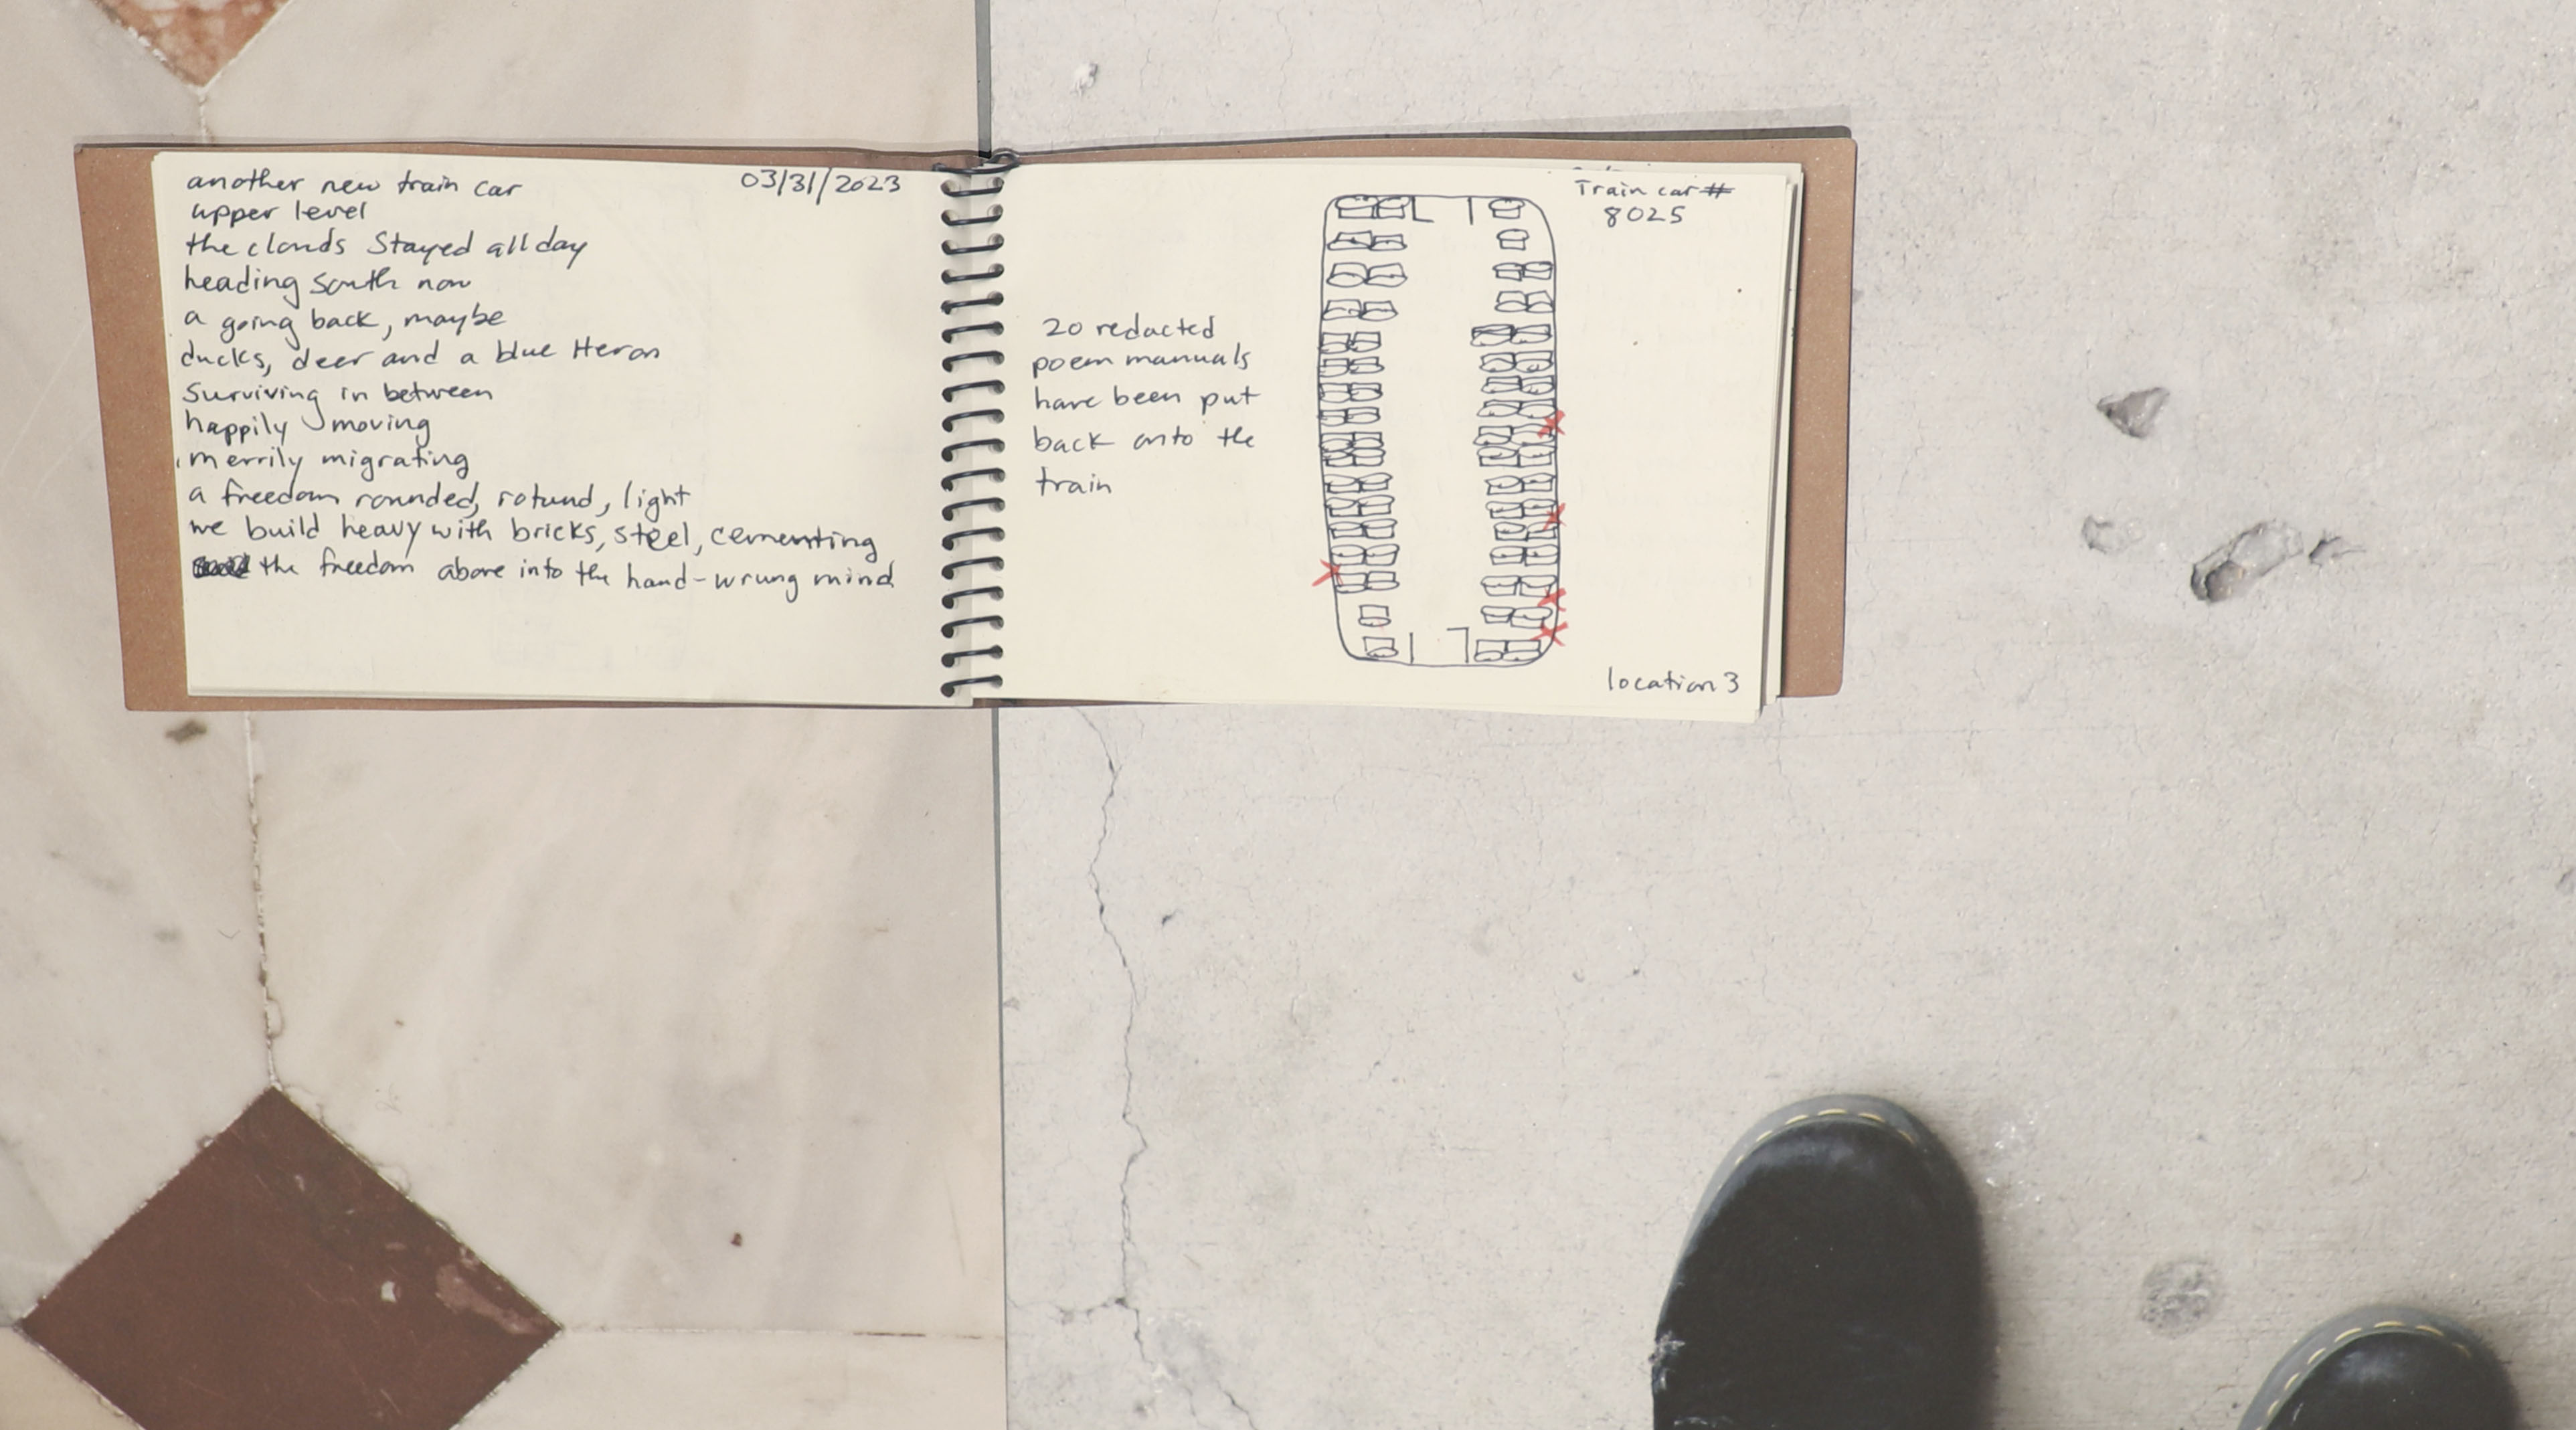 another new train car
03/31/2023
upper level
the clouds stayed all day
heading south now
a going back, maybe
ducks, deer and a blue Heron
surviving in between
happily moving
merrily migrating
a freedom rounded, rotund, light
we build heavy with bricks, steel, cementing
the freedom above into the hand-wrung mind
Train car #
8025
20 redacted
poem manuals
have been put
back onto the
train
location 3